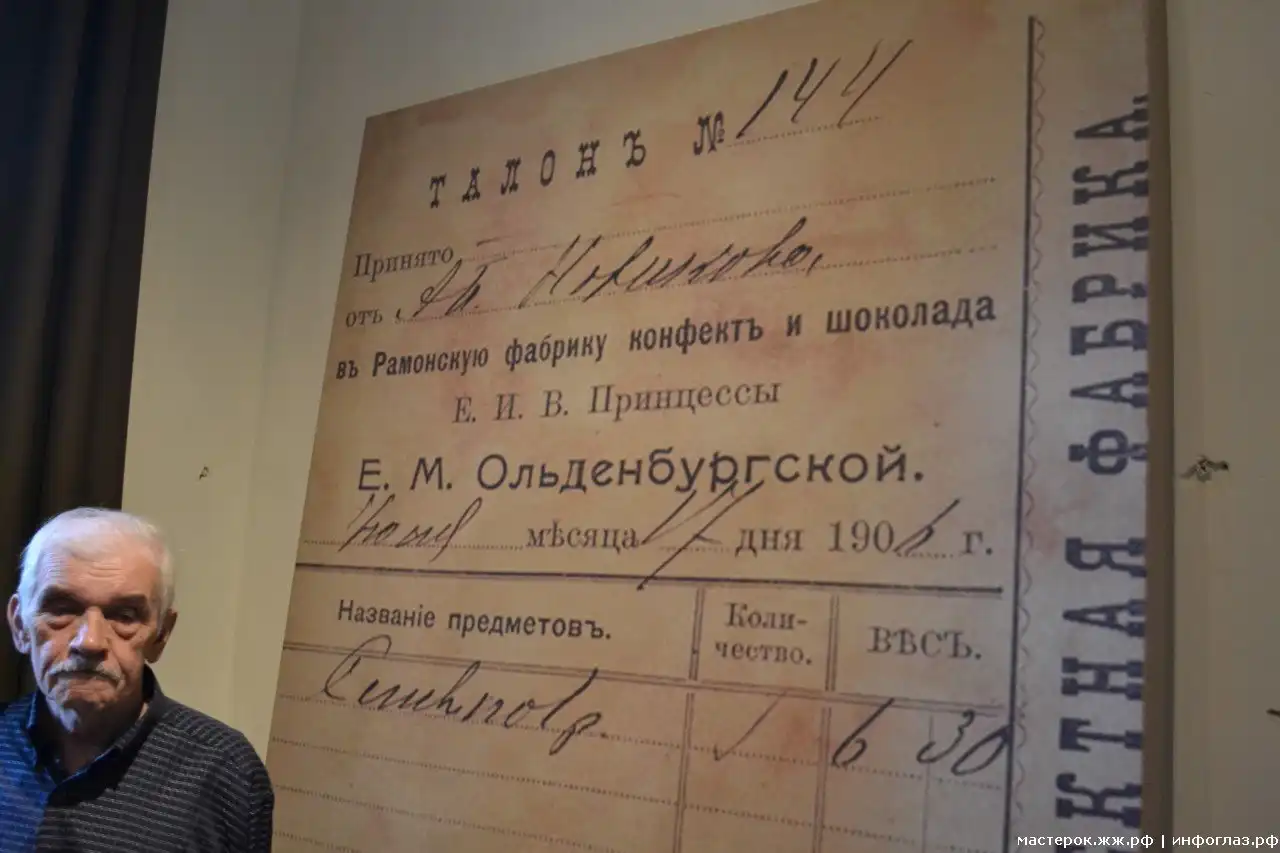 ТАЛОНЪ № 144
Принято
отъ Ап. Новикова,
въ Рамонскую фабрику конфектъ и шоколада
Е. И. В. Принцессы
Е. М. Ольденбургской.
Июля мѣсяца 17 дня 1906 г.
Названіе предметовъ.
Коли-
чество.
ВѢСЪ.
1 6 30
КТНАЯ ФАБРИКА
мастерок.жж.рф | инфоглаз.рф